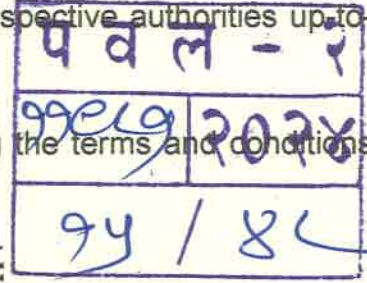 spective authorities up-to-
प व ल - २
२०२४
the terms and conditions
१५ / ४८